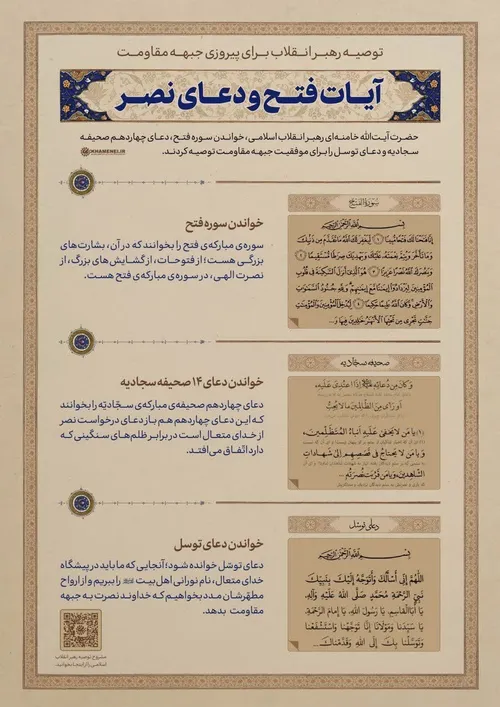 توصیه رهبر انقلاب برای پیروزی جبهه مقاومت
آیات فتح و دعای نصر
حضرت آیت‌الله خامنه‌ای رهبر انقلاب اسلامی، خواندن سوره فتح، دعای چهاردهم صحیفه
سجادیه و دعای توسل را برای موفقیت جبهه مقاومت توصیه کردند.
KHAMENEI.IR
سورة الفتح
بسم الله الرحمن الرحیم
إِنَّا فَتَحْنَا لَكَ فَتْحًا مُبِينًا ۝۱ لِيَغْفِرَ لَكَ اللَّهُ مَا تَقَدَّمَ مِنْ ذَنْبِكَ
وَمَا تَأَخَّرَ وَيُتِمَّ نِعْمَتَهُ عَلَيْكَ وَيَهْدِيَكَ صِرَاطًا مُسْتَقِيمًا ۝۲
وَيَنْصُرَكَ اللَّهُ نَصْرًا عَزِيزًا ۝۳ هُوَ الَّذِي أَنْزَلَ السَّكِينَةَ فِي قُلُوبِ
الْمُؤْمِنِينَ لِيَزْدَادُوا إِيمَانًا مَعَ إِيمَانِهِمْ وَلِلَّهِ جُنُودُ السَّمَاوَاتِ
وَالْأَرْضِ وَكَانَ اللَّهُ عَلِيمًا حَكِيمًا ۝۴ لِيُدْخِلَ الْمُؤْمِنِينَ وَالْمُؤْمِنَاتِ
جَنَّاتٍ تَجْرِي مِنْ تَحْتِهَا الْأَنْهَارُ خَالِدِينَ فِيهَا وَ...
خواندن سوره فتح
سوره‌ی مبارکه‌ی فتح را بخوانند که در آن، بشارت های
بزرگی هست؛ از فتوحات، از گشایش های بزرگ، از
نصرت الهی، در سوره‌ی مبارکه‌ی فتح هست.
صحیفه سجادیه
وَ كَانَ مِنْ دُعَائِهِ إِذَا اعْتُدِيَ عَلَيْهِ،
أَوْ رَأَى مِنَ الظَّالِمِينَ مَا لَا يُحِبُّ
(۱) يَا مَنْ لَا يَخْفَى عَلَيْهِ أَنْبَاءُ الْمُتَظَلِّمِينَ،
وَ يَا مَنْ لَا يَحْتَاجُ فِي قَصَصِهِمْ إِلَى شَهَادَاتِ
الشَّاهِدِينَ، وَ يَا مَنْ قَرُبَتْ نُصْرَتُهُ ...
خواندن دعای ۱۴ صحیفه سجادیه
دعای چهاردهم صحیفه‌ی مبارکه‌ی سجّادیّه را بخوانند
که این دعای چهاردهم هم باز دعای درخواست نصر
از خدای متعال است در برابر ظلم های سنگینی که
دارد اتّفاق می‌افتد.
دعای توسل
بسم الله الرحمن الرحیم
اللَّهُمَّ إِنِّي أَسْأَلُكَ وَأَتَوَجَّهُ إِلَيْكَ بِنَبِيِّكَ
نَبِيِّ الرَّحْمَةِ مُحَمَّدٍ صَلَّى اللهُ عَلَيْهِ وَآلِهِ،
يَا أَبَا الْقَاسِمِ يَا رَسُولَ اللهِ، يَا إِمَامَ الرَّحْمَةِ،
يَا سَيِّدَنَا وَمَوْلَانَا إِنَّا تَوَجَّهْنَا وَاسْتَشْفَعْنَا
وَتَوَسَّلْنَا بِكَ إِلَى اللهِ وَقَدَّمْنَاكَ ...
خواندن دعای توسل
دعای توسّل خوانده شود؛ آنجایی که ما باید در پیشگاه
خدای متعال، نام نورانی اهل بیت را ببریم و از ارواح
مطهّرشان مدد بخواهیم که خداوند نصرت به جبهه
مقاومت بدهد.
مشروح توصیه رهبر انقلاب
اسلامی را از اینجا بخوانید.